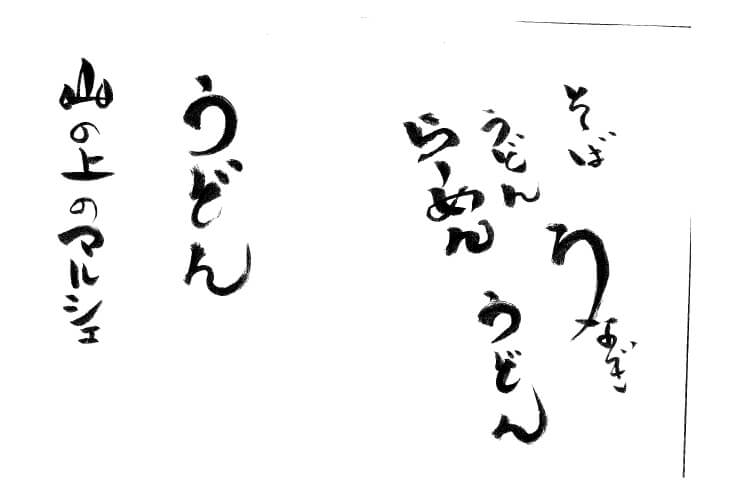 そば
うなぎ
うどん
らーめん
うどん
うどん
山の上のマルシェ